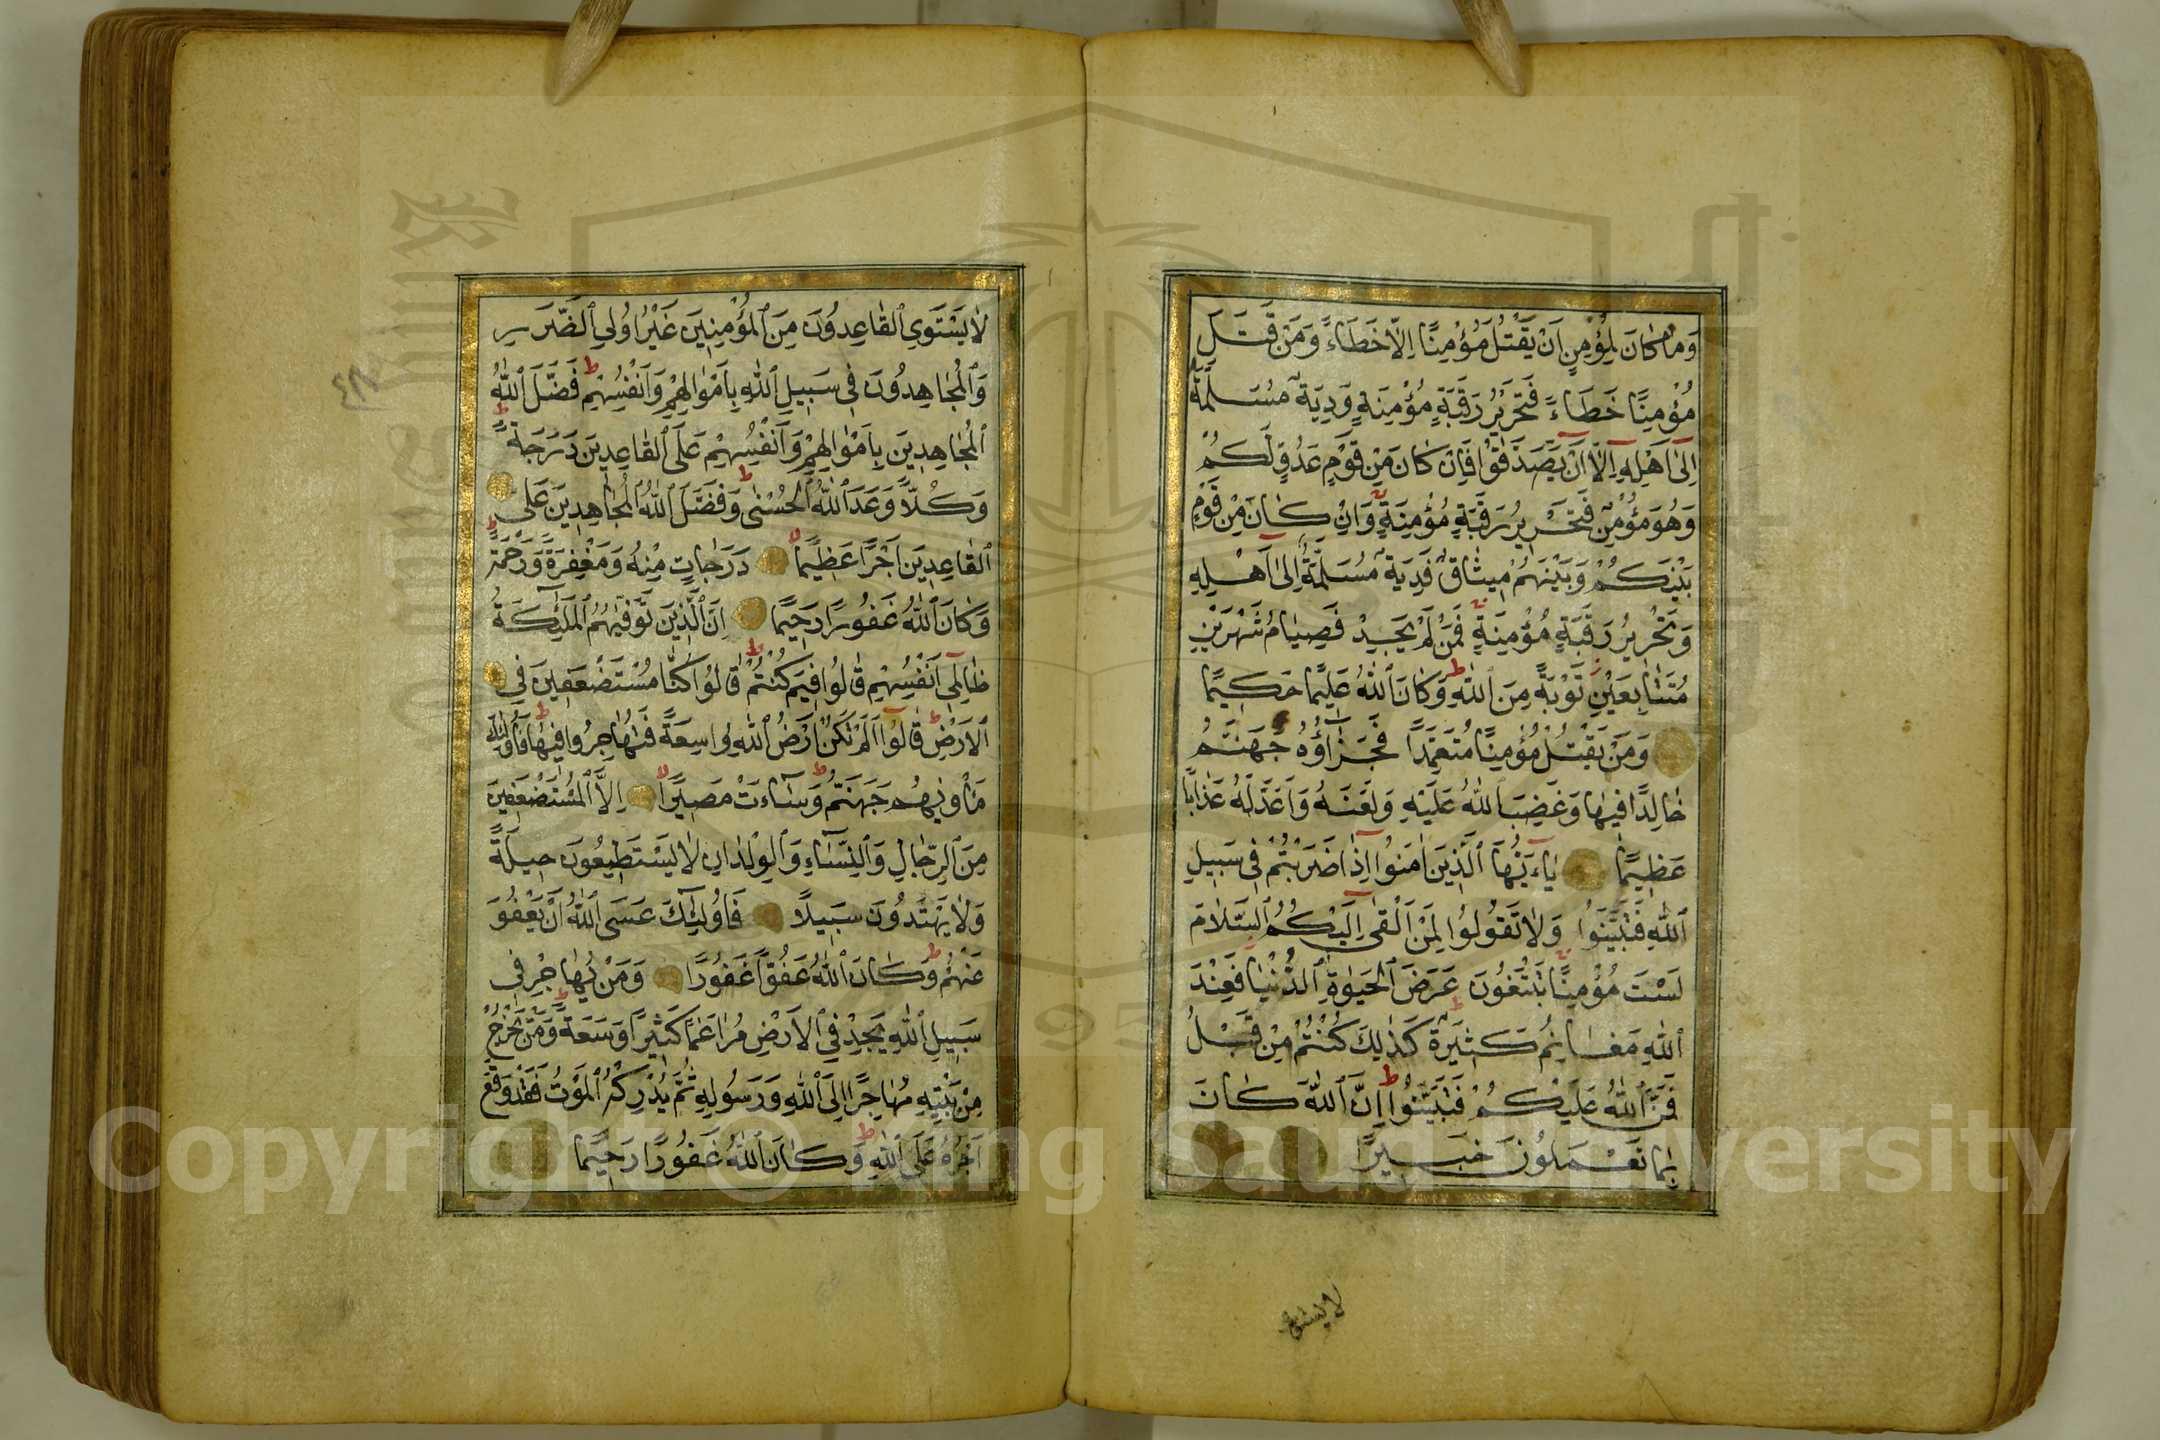 وَمَا كَانَ لِمُؤْمِنٍ اَنْ يَقْتُلَ مُؤْمِنًا اِلَّا خَطَاءً وَمَنْ قَتَلَ
مُؤْمِنًا خَطَاءً فَتَحْرِيرُ رَقَبَةٍ مُؤْمِنَةٍ وَدِيَةٌ مُسَلَّمَةٌ
اِلٰٓى اَهْلِهِ اِلَّٓا اَنْ يَصَّدَّقُوا فَاِنْ كَانَ مِنْ قَوْمٍ عَدُوٍّ لَكُمْ
وَهُوَ مُؤْمِنٌ فَتَحْرِيرُ رَقَبَةٍ مُؤْمِنَةٍ وَاِنْ كَانَ مِنْ قَوْمٍ
بَيْنَكُمْ وَبَيْنَهُمْ مِيثَاقٌ فَدِيَةٌ مُسَلَّمَةٌ اِلٰٓى اَهْلِهِ
وَتَحْرِيرُ رَقَبَةٍ مُؤْمِنَةٍ فَمَنْ لَمْ يَجِدْ فَصِيَامُ شَهْرَيْنِ
مُتَتَابِعَيْنِ تَوْبَةً مِنَ ٱللّٰهِ وَكَانَ ٱللّٰهُ عَلِيمًا حَكِيمًا
وَمَنْ يَقْتُلْ مُؤْمِنًا مُتَعَمِّدًا فَجَزَآؤُهُ جَهَنَّمُ
خَالِدًا فِيهَا وَغَضِبَ ٱللّٰهُ عَلَيْهِ وَلَعَنَهُ وَاَعَدَّ لَهُ عَذَابًا
عَظِيمًا يَٓاءَيُّهَا ٱلَّذِينَ اٰمَنُٓوا اِذَا ضَرَبْتُمْ فِى سَبِيلِ
ٱللّٰهِ فَتَبَيَّنُوا وَلَا تَقُولُوا لِمَنْ اَلْقٰٓى اِلَيْكُمُ ٱلسَّلَامَ
لَسْتَ مُؤْمِنًا تَبْتَغُونَ عَرَضَ ٱلْحَيٰوةِ ٱلدُّنْيَا فَعِنْدَ
ٱللّٰهِ مَغَانِمُ كَثِيرَةٌ كَذٰلِكَ كُنْتُمْ مِنْ قَبْلُ
فَمَنَّ ٱللّٰهُ عَلَيْكُمْ فَتَبَيَّنُوا اِنَّ ٱللّٰهَ كَانَ
بِمَا تَعْمَلُونَ خَبِيرًا
لا يستوى
لَا يَسْتَوِى ٱلْقَاعِدُونَ مِنَ ٱلْمُؤْمِنِينَ غَيْرُ اُولِى ٱلضَّرَرِ
وَٱلْمُجَاهِدُونَ فِى سَبِيلِ ٱللّٰهِ بِاَمْوَالِهِمْ وَاَنْفُسِهِمْ فَضَّلَ ٱللّٰهُ
ٱلْمُجَاهِدِينَ بِاَمْوَالِهِمْ وَاَنْفُسِهِمْ عَلَى ٱلْقَاعِدِينَ دَرَجَةً
وَكُلًّا وَعَدَ ٱللّٰهُ ٱلْحُسْنٰى وَفَضَّلَ ٱللّٰهُ ٱلْمُجَاهِدِينَ عَلَى
ٱلْقَاعِدِينَ اَجْرًا عَظِيمًا دَرَجَاتٍ مِنْهُ وَمَغْفِرَةً وَرَحْمَةً
وَكَانَ ٱللّٰهُ غَفُورًا رَحِيمًا اِنَّ ٱلَّذِينَ تَوَفّٰيهُمُ ٱلْمَلٰٓئِكَةُ
ظَالِمِٓى اَنْفُسِهِمْ قَالُوا فِيمَ كُنْتُمْ قَالُوا كُنَّا مُسْتَضْعَفِينَ فِى
ٱلْاَرْضِ قَالُٓوا اَلَمْ تَكُنْ اَرْضُ ٱللّٰهِ وَاسِعَةً فَتُهَاجِرُوا فِيهَا فَاُولٰٓئِكَ
مَأْوٰيهُمْ جَهَنَّمُ وَسَٓاءَتْ مَصِيرًا اِلَّا ٱلْمُسْتَضْعَفِينَ
مِنَ ٱلرِّجَالِ وَٱلنِّسَٓاءِ وَٱلْوِلْدَانِ لَا يَسْتَطِيعُونَ حِيلَةً
وَلَا يَهْتَدُونَ سَبِيلًا فَاُولٰٓئِكَ عَسَى ٱللّٰهُ اَنْ يَعْفُوَ
عَنْهُمْ وَكَانَ ٱللّٰهُ عَفُوًّا غَفُورًا وَمَنْ يُهَاجِرْ فِى
سَبِيلِ ٱللّٰهِ يَجِدْ فِى ٱلْاَرْضِ مُرَاغَمًا كَثِيرًا وَسَعَةً وَمَنْ يَخْرُجْ
مِنْ بَيْتِهِ مُهَاجِرًا اِلَى ٱللّٰهِ وَرَسُولِهِ ثُمَّ يُدْرِكْهُ ٱلْمَوْتُ فَقَدْ وَقَعَ
اَجْرُهُ عَلَى ٱللّٰهِ وَكَانَ ٱللّٰهُ غَفُورًا رَحِيمًا
Copyright © King Saud University